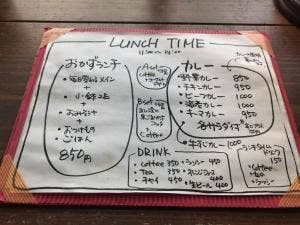 LUNCH TIME
おかずランチ
・毎日変わるメイン
+
・小鉢2品
+
・おみそ汁
+
・おつけもの
・ごはん
850円
Aset
Coffee
Bset
Coffee
カレー
・野菜カレー 850
・チキンカレー 950
・ビーフカレー 1000
・海老カレー 1000
・キーマカレー 950
・牛すじカレー 1000
DRINK
・Coffee 350
・Tea 350
・チャイ 450
・ラッシー 450
・オレンジジュース 400
・生ビール 400
ランチタイム
ドリンク 150
・Coffee
・Tea
・ラッシー